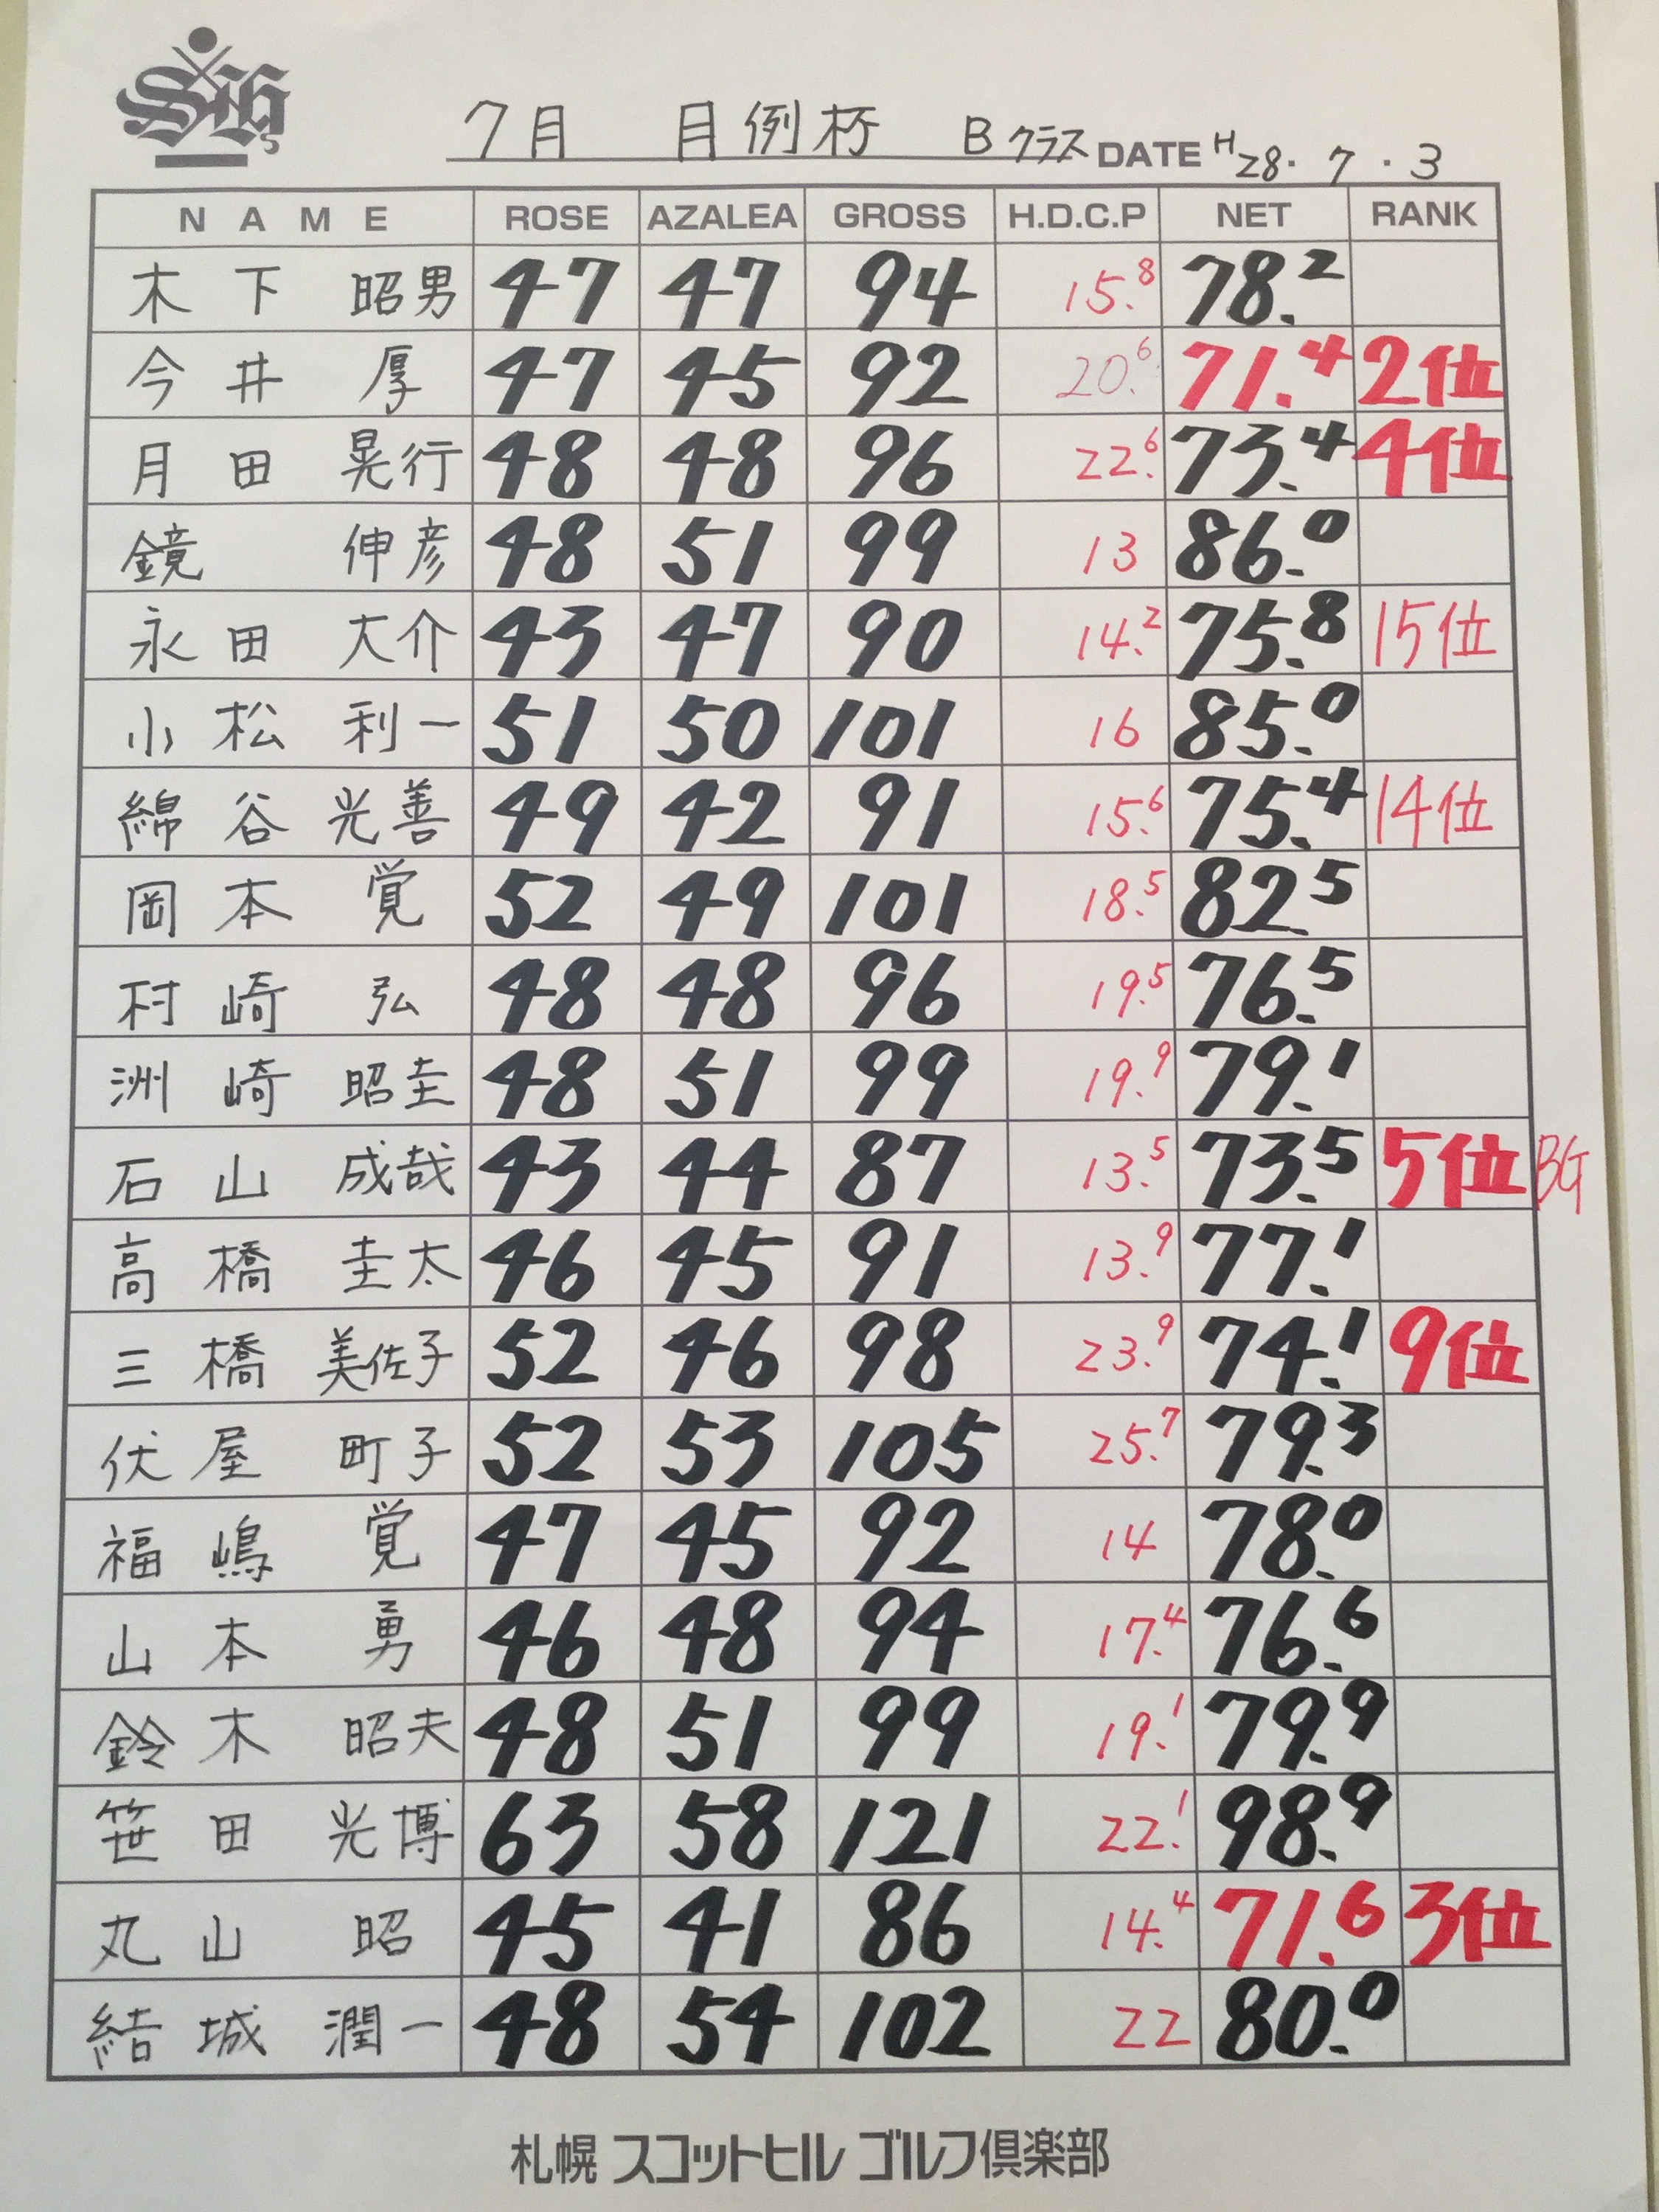 7月 月例杯 Bクラス DATE H28.7.3
NAME ROSE AZALEA GROSS H.D.C.P NET RANK
木下 昭男 47 47 94 15.8 78.2
今井 厚 47 45 92 20.6 71.4 2位
月田 晃行 48 48 96 22.6 73.4 4位
鏡 伸彦 48 51 99 13 86.0
永田 大介 43 47 90 14.2 75.8 15位
小松 利一 51 50 101 16 85.0
綿谷 光善 49 42 91 15.6 75.4 14位
岡本 覚 52 49 101 18.5 82.5
村崎 弘 48 48 96 19.5 76.5
洲崎 昭圭 48 51 99 19.9 79.1
石山 成哉 43 44 87 13.5 73.5 5位 BG
高橋 圭太 46 45 91 13.9 77.1
三橋 美佐子 52 46 98 23.9 74.1 9位
伏屋 町子 52 53 105 25.7 79.3
福嶋 覚 47 45 92 14 78.0
山本 勇 46 48 94 17.4 76.6
鈴木 昭夫 48 51 99 19.1 79.9
笹田 光博 63 58 121 22.1 98.9
丸山 昭 45 41 86 14.4 71.6 3位
結城 潤一 48 54 102 22 80.0
札幌 スコットヒル ゴルフ倶楽部